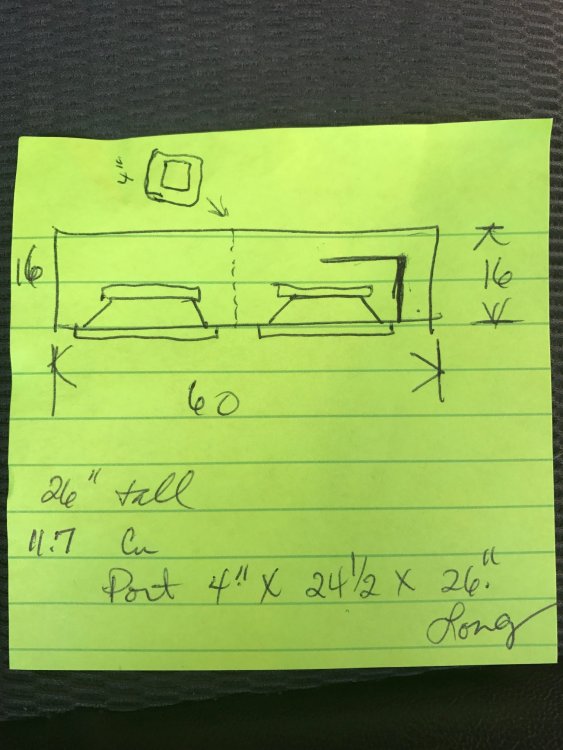 4"
16
16
60
26" tall
11.7 Cu
Port 4" X 24 1/2 X 26"
Long